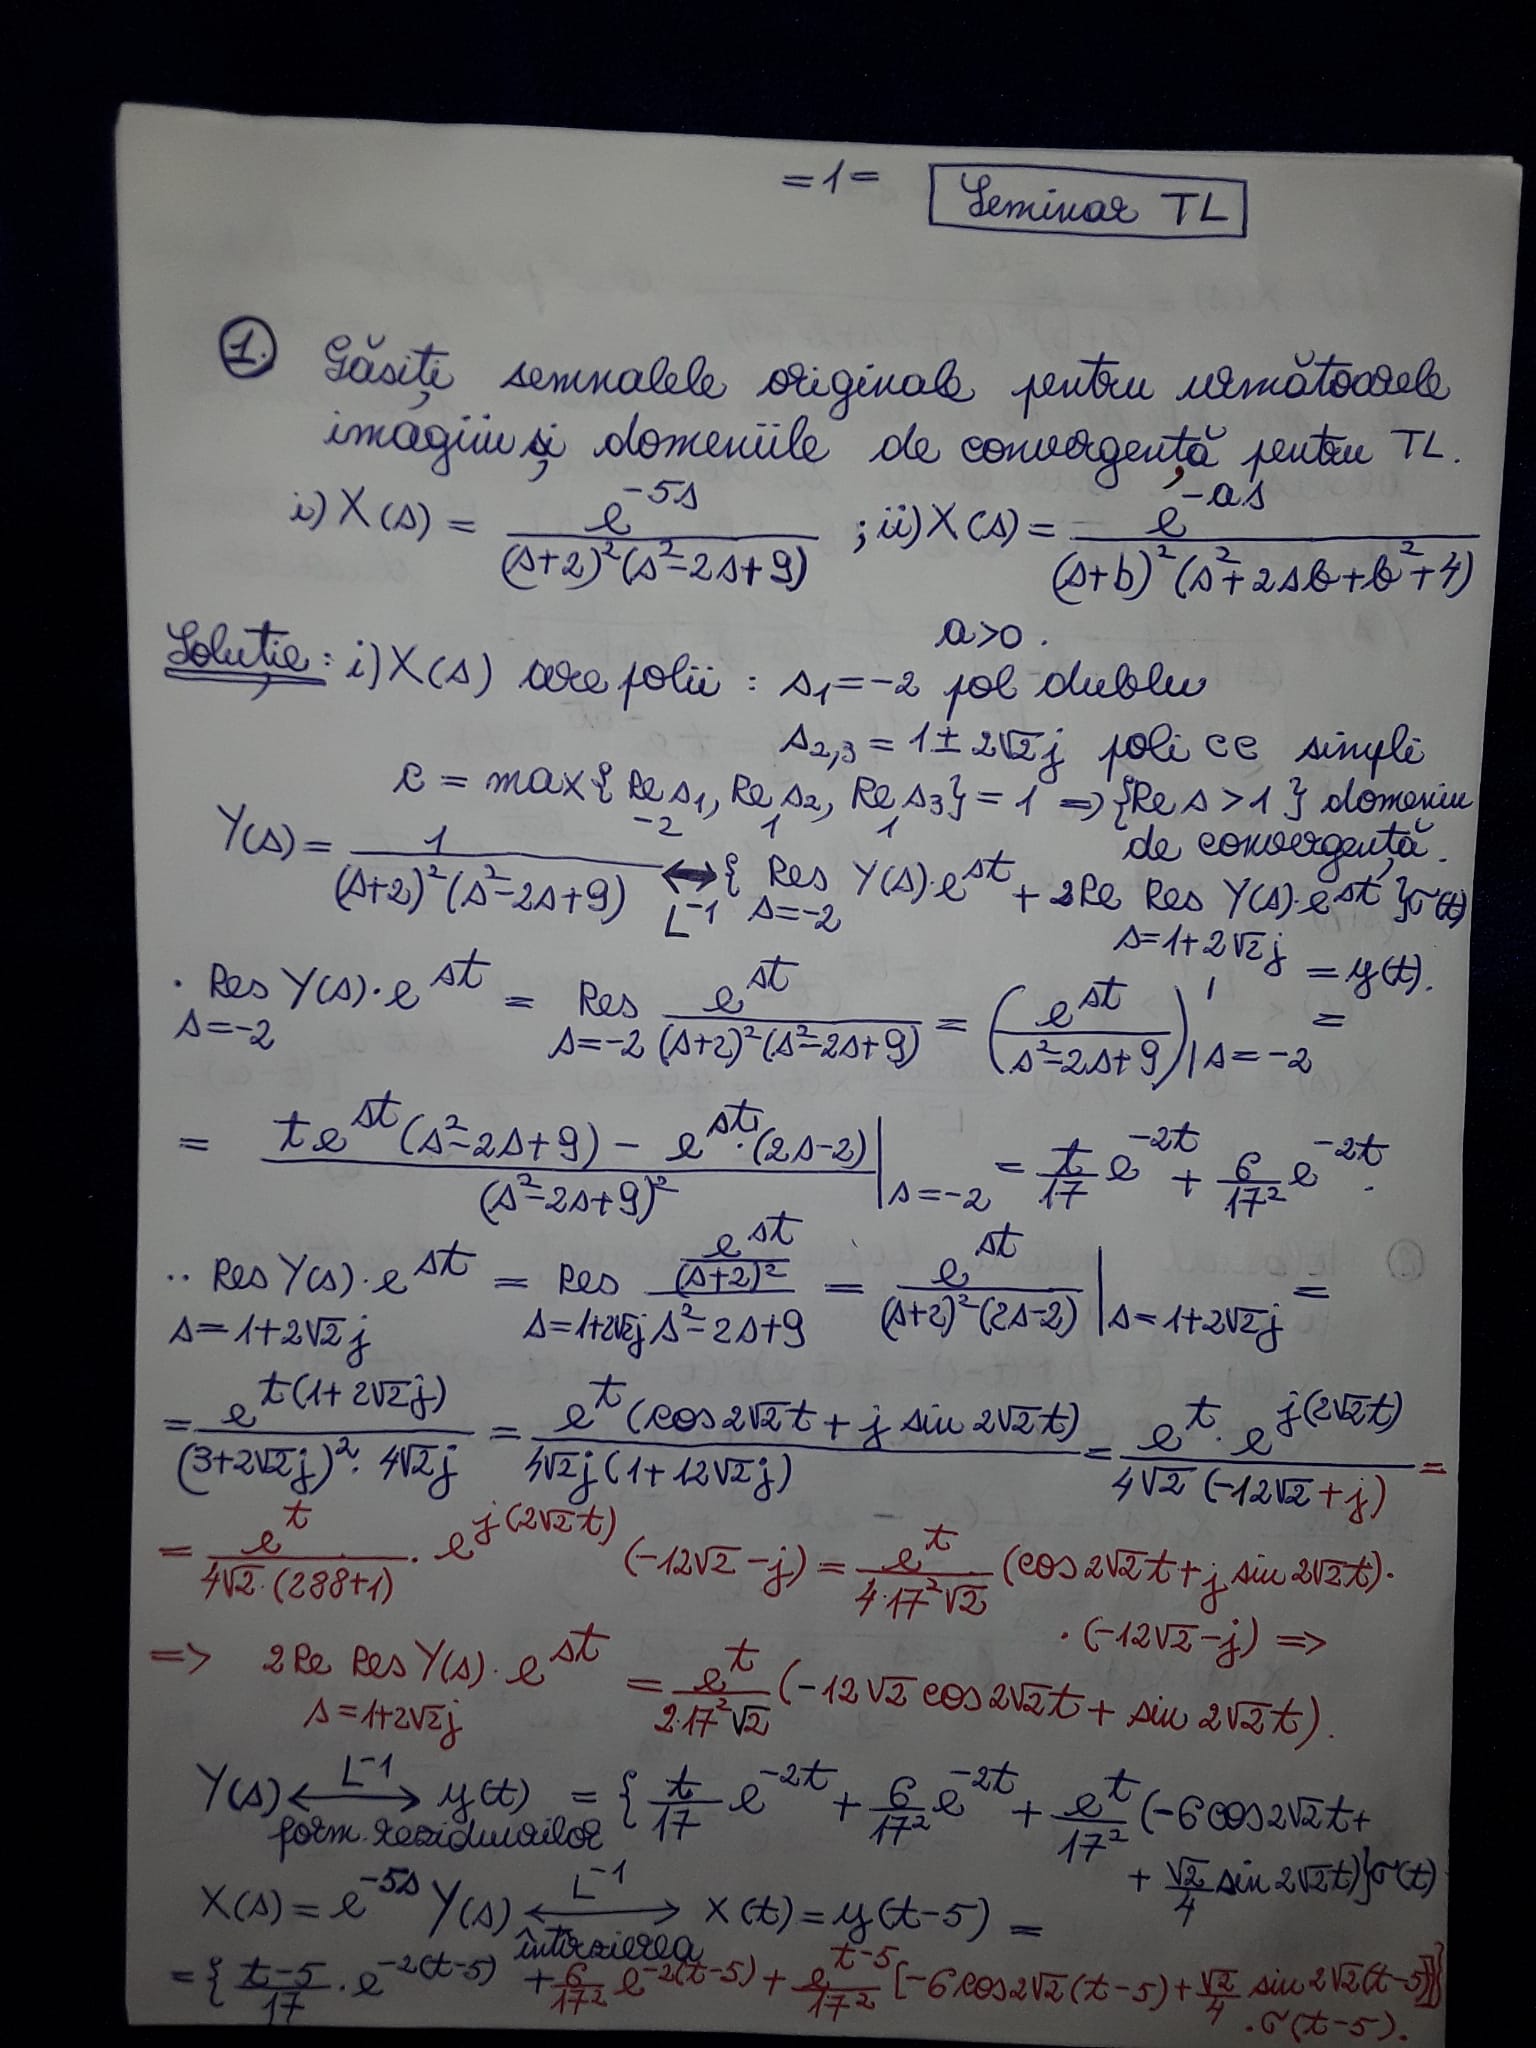 =1= Seminar TL
1. Găsiți semnalele originale pentru următoarele
imagini și domeniile de convergență pentru TL.
i) X(s) = e^{-5s} / ((s+2)²(s²-2s+9)) ; ii) X(s) = e^{-as} / ((s+b)²(s²+2sb+b²+4))
a>0.
Soluție: i) X(s) are polii : s₁=-2 pol dublu
s₂,₃ = 1±2√2j poli CC simpli
c = max{Re s₁, Re s₂, Re s₃} = 1 => {Re s > 1} domeniu
-2 1 1 de convergență.
Y(s) = 1 / ((s+2)²(s²-2s+9)) ↔ L⁻¹ { Res_{s=-2} Y(s)·e^{st} + 2Re Res_{s=1+2√2j} Y(s)·e^{st} }σ(t)
= y(t).
· Res_{s=-2} Y(s)·e^{st} = Res_{s=-2} e^{st} / ((s+2)²(s²-2s+9)) = (e^{st} / (s²-2s+9))' |s=-2 =
= (t e^{st}(s²-2s+9) - e^{st}·(2s-2)) / (s²-2s+9)² |s=-2 = t/17 e^{-2t} + 6/17² e^{-2t}.
·· Res_{s=1+2√2j} Y(s)·e^{st} = Res_{s=1+2√2j} (e^{st}/(s+2)²) / (s²-2s+9) = e^{st} / ((s+2)²(2s-2)) |s=1+2√2j =
= e^{t(1+2√2j)} / ((3+2√2j)²·4√2j) = e^t(cos2√2t + j sin2√2t) / (4√2j(1+12√2j)) = e^t·e^{j(2√2t)} / (4√2(-12√2+j)) =
= e^t / (4√2·(288+1)) · e^{j(2√2t)} (-12√2-j) = e^t / (4·17²√2) (cos2√2t + j sin2√2t)·
·(-12√2-j) =>
=> 2Re Res_{s=1+2√2j} Y(s)·e^{st} = e^t / (2·17²√2) (-12√2 cos2√2t + sin2√2t).
Y(s) ↔ L⁻¹ y(t) = { t/17 e^{-2t} + 6/17² e^{-2t} + e^t/17² (-6cos2√2t+
form. reziduurilor
+ √2/4 sin2√2t)}σ(t)
X(s) = e^{-5s} Y(s) ↔ L⁻¹ x(t) = y(t-5) =
întârzierea
= { (t-5)/17 · e^{-2(t-5)} + 6/17² e^{-2(t-5)} + e^{t-5}/17² [-6cos2√2(t-5) + √2/4 sin2√2(t-5)]}
·σ(t-5).